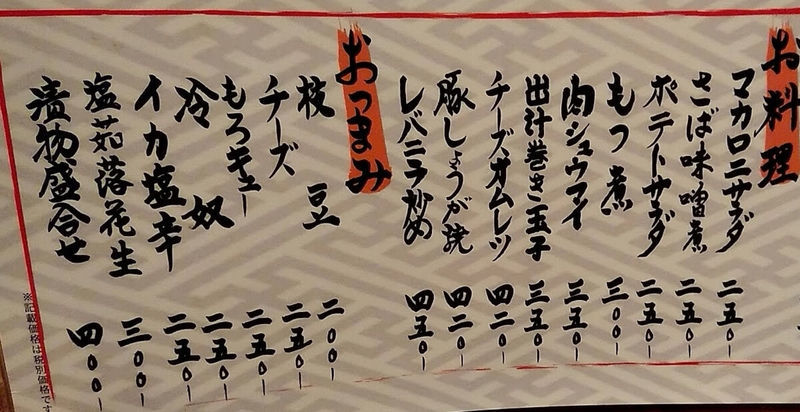 お料理
マカロニサラダ 二五〇-
さば味噌煮 二五〇-
ポテトサラダ 二五〇-
もつ煮 三〇〇-
肉シュウマイ 三五〇-
出汁巻き玉子 三五〇-
チーズオムレツ 四二〇-
豚しょうが焼 四二〇-
レバニラ炒め 四五〇-
おつまみ
枝豆 二〇〇-
チーズ 二五〇-
もろキュー 二五〇-
冷奴 二五〇-
イカ塩辛 二五〇-
塩茹落花生 三〇〇-
漬物盛合せ 四〇〇-
※記載価格は税別価格です